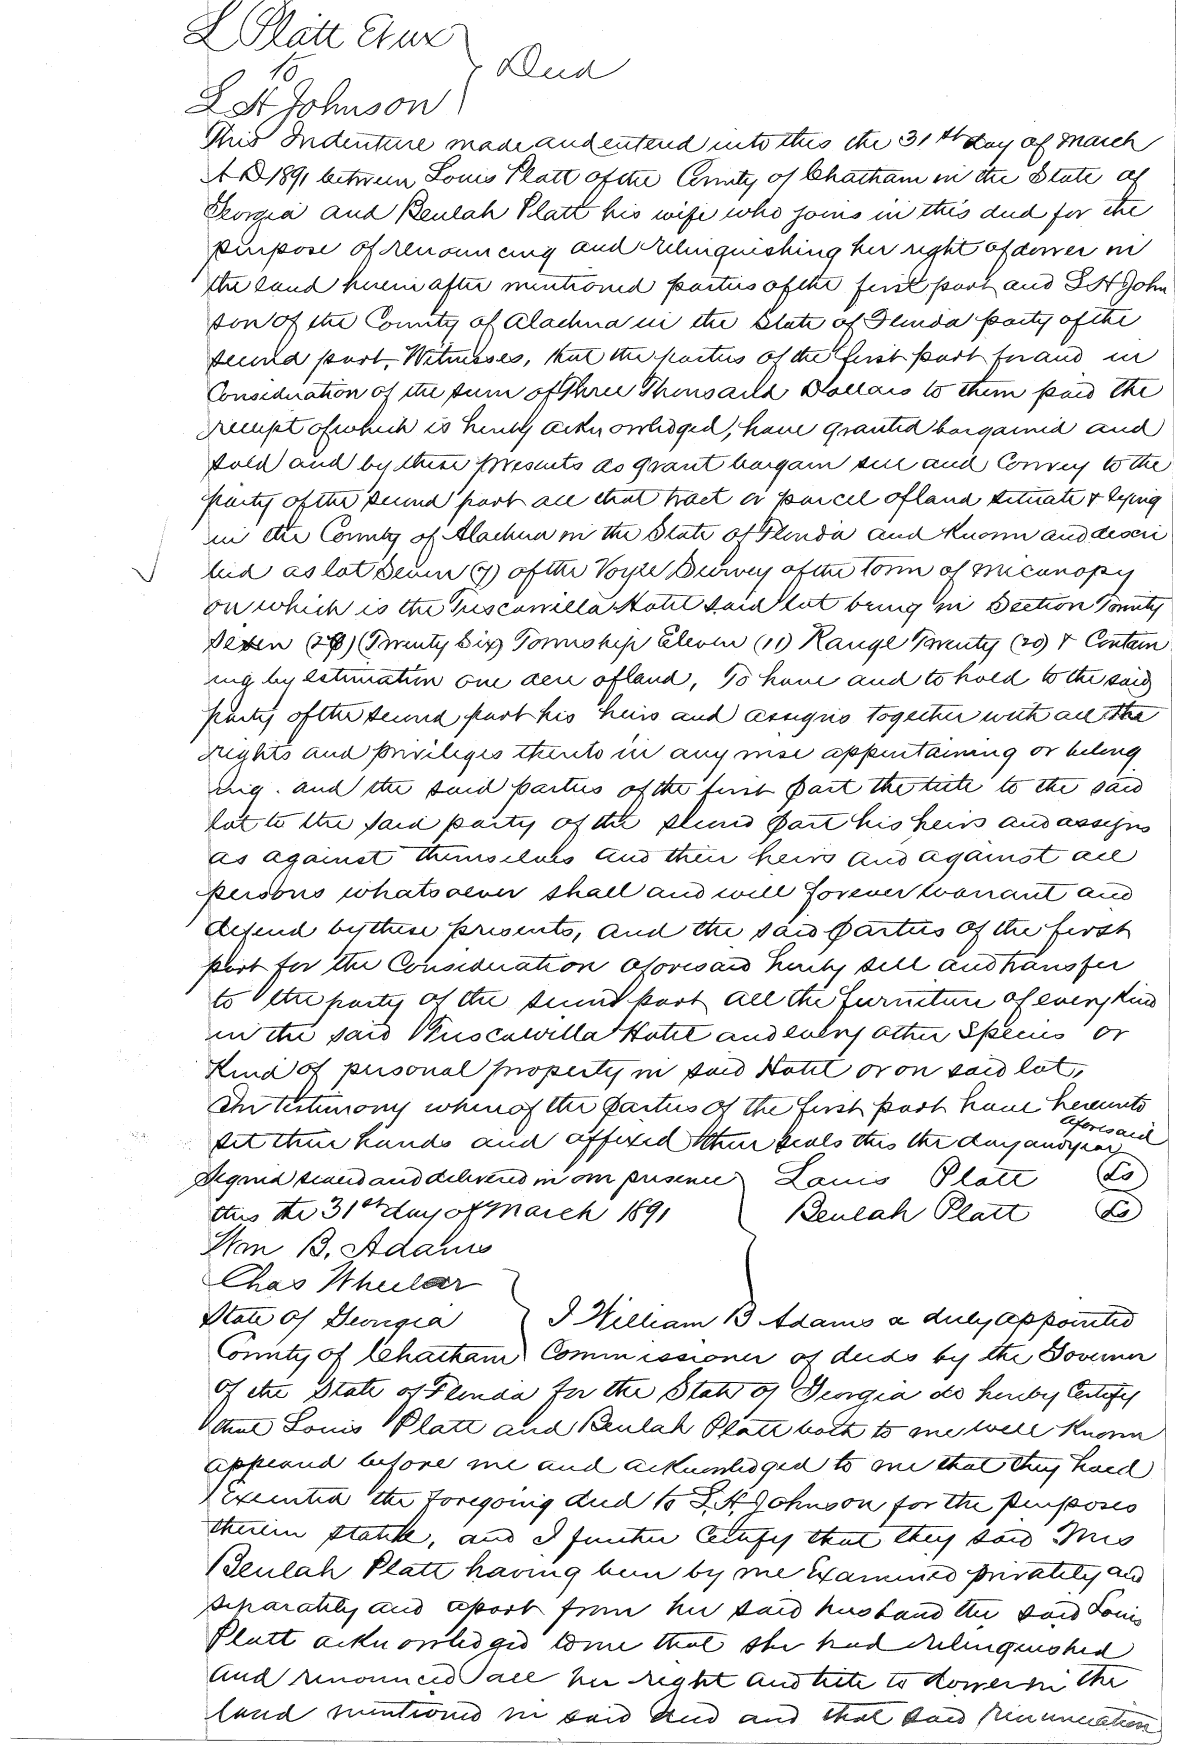 L Platt Et ux
to
Deed
L H Johnson
This Indenture made and entered into this the 31st day of March
A D 1891 between Louis Platt of the County of Chatham in the State of
Georgia and Beulah Platt his wife who joins in this deed for the
purpose of renouncing and relinquishing her right of dower in
the land herein after mentioned parties of the first part and L H John
son of the County of Alachua in the State of Florida party of the
second part, Witnesses, that the parties of the first part for and in
Consideration of the sum of Three Thousand Dollars to them paid the
receipt of which is hereby acknowledged, have granted bargained and
sold and by these presents do grant bargain sell and Convey to the
party of the second part all that tract or parcel of land situate & lying
in the County of Alachua in the State of Florida and Known and descri
bed as lot Seven (7) of the Voyle Survey of the Town of Micanopy
on which is the Tuscawilla Hotel said lot being in Section Twenty
(Twenty Six) Township Eleven (11) Range Twenty (20) & Contain
ing by estimation one acre of land, To have and to hold to the said
party of the second part his heirs and assigns together with all the
rights and privileges thereto in any wise appertaining or belong
ing. and the said parties of the first part the title to the said
lot to the said party of the second part his heirs and assigns
as against themselves and their heirs and against all
persons whatsoever shall and will forever warrant and
defend by these presents, and the said parties of the first
part for the Consideration aforesaid hereby sell and transfer
to the party of the second part all the furniture of every Kind
in the said Tuscawilla Hotel and every other Species or
Kind of personal property in said Hotel or on said lot,
In testimony whereof the parties of the first part have hereunto
set their hands and affixed their seals this the day and year aforesaid
Signed sealed and delivered in our presence Louis Platt (Ls)
this the 31st day of March 1891 Beulah Platt (Ls)
Wm B. Adams
Chas Wheeler
State of Georgia I William B Adams a duly appointed
County of Chatham Commissioner of deeds by the Governor
of the State of Florida for the State of Georgia do hereby Certify
that Louis Platt and Beulah Platt both to me well Known
appeared before me and acknowledged to me that they had
Executed the foregoing deed to L. H. Johnson for the purposes
therein stated, and I further Certify that they said Mrs
Beulah Platt having been by me Examined privately and
separately and apart from her said husband the said Louis
Platt acknowledged to me that she had relinquished
and renounced all her right and title to dower in the
land mentioned in said deed and that said renunciation